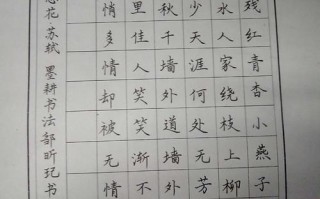 残红青杏小燕子
水人家绕枝上柳
少天涯何处无芳
秋千墙外道墙外
里佳人笑笑渐不
悄多情却被无情
花·苏轼 墨耕书法部昕玘书